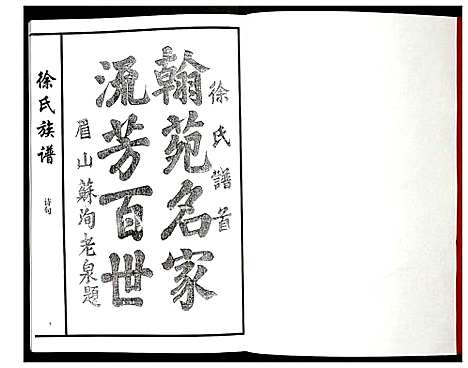 徐氏譜首
翰苑名家
流芳百世
眉山蘇洵老泉題
徐氏族谱
诗句